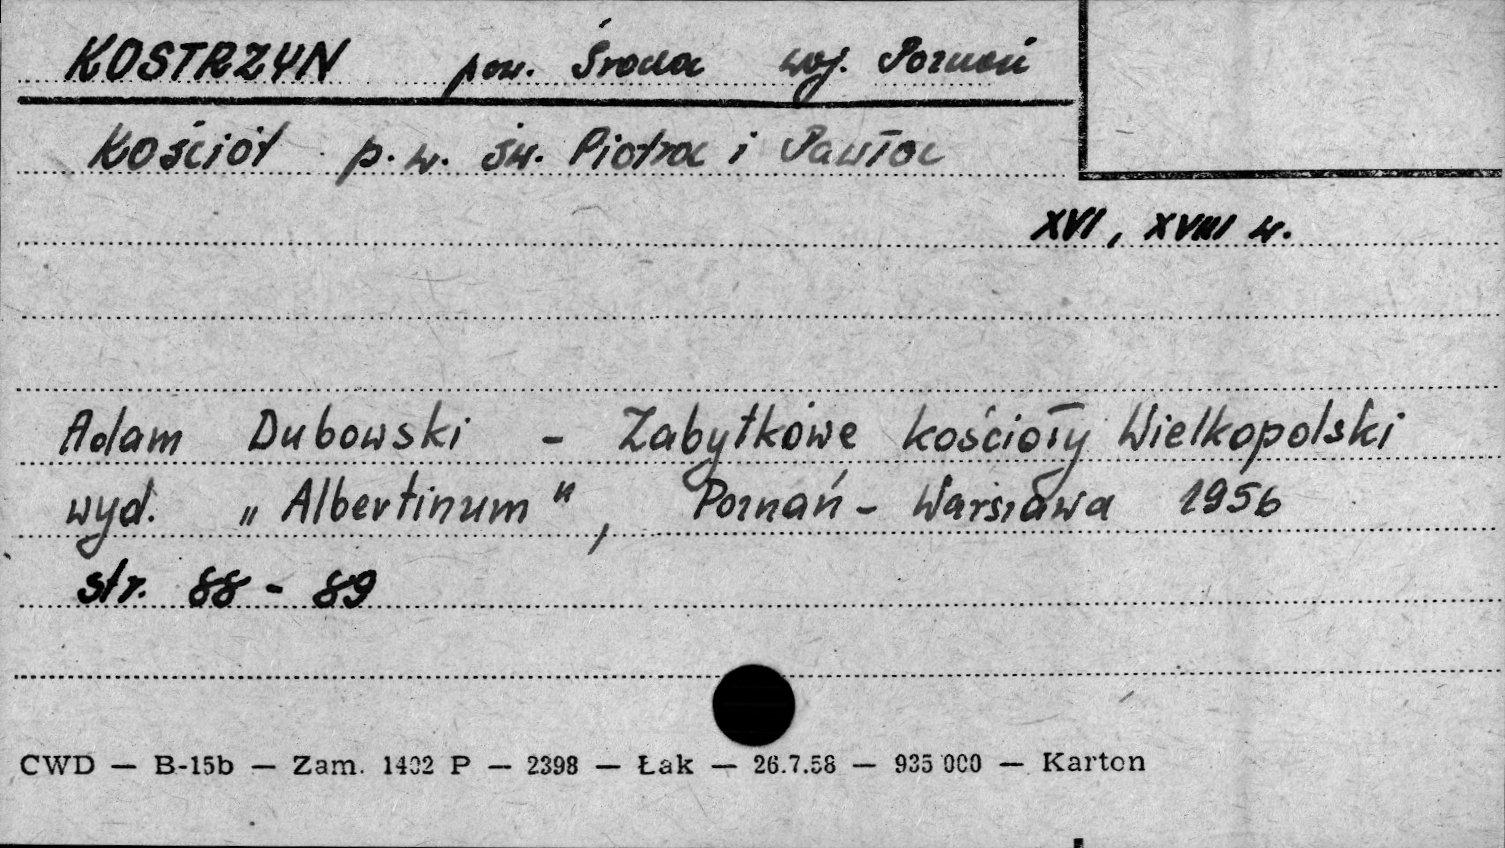 KOSTRZYN pow. Środa woj. Poznań
Kościół p.w. św. Piotra i Pawła
XVI, XVIII w.
Adam Dubowski - Zabytkowe kościoły Wielkopolski
wyd. „Albertinum", Poznań - Warszawa 1956
str. 88 - 89
CWD — B-15b — Zam. 1402 P — 2398 — Łak — 26.7.58 — 935 000 — Karton